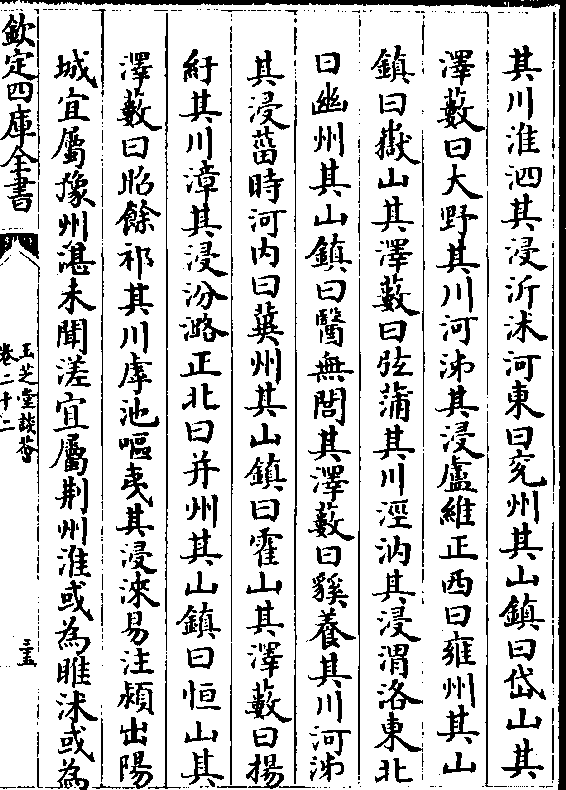 其川淮泗其浸沂沭河東曰兖州其山鎮曰岱山其
澤藪曰大野其川河泲其浸盧維正西曰雍州其山
鎮曰嶽山其澤藪曰弦蒲其川涇汭其浸渭洛東北
曰幽州其山鎮曰醫無閭其澤藪曰貕養其川河泲
其浸菑時河内曰冀州其山鎮曰霍山其澤藪曰揚
紆其川漳其浸汾潞正北曰并州其山鎮曰恒山其
澤藪曰昭餘祁其川虖池嘔夷其浸淶易注潁出陽
城宜屬豫州湛未聞溠宜屬荆州淮或為睢沭或為
欽定四庫全書
玉芝堂談薈
卷二十二
三五